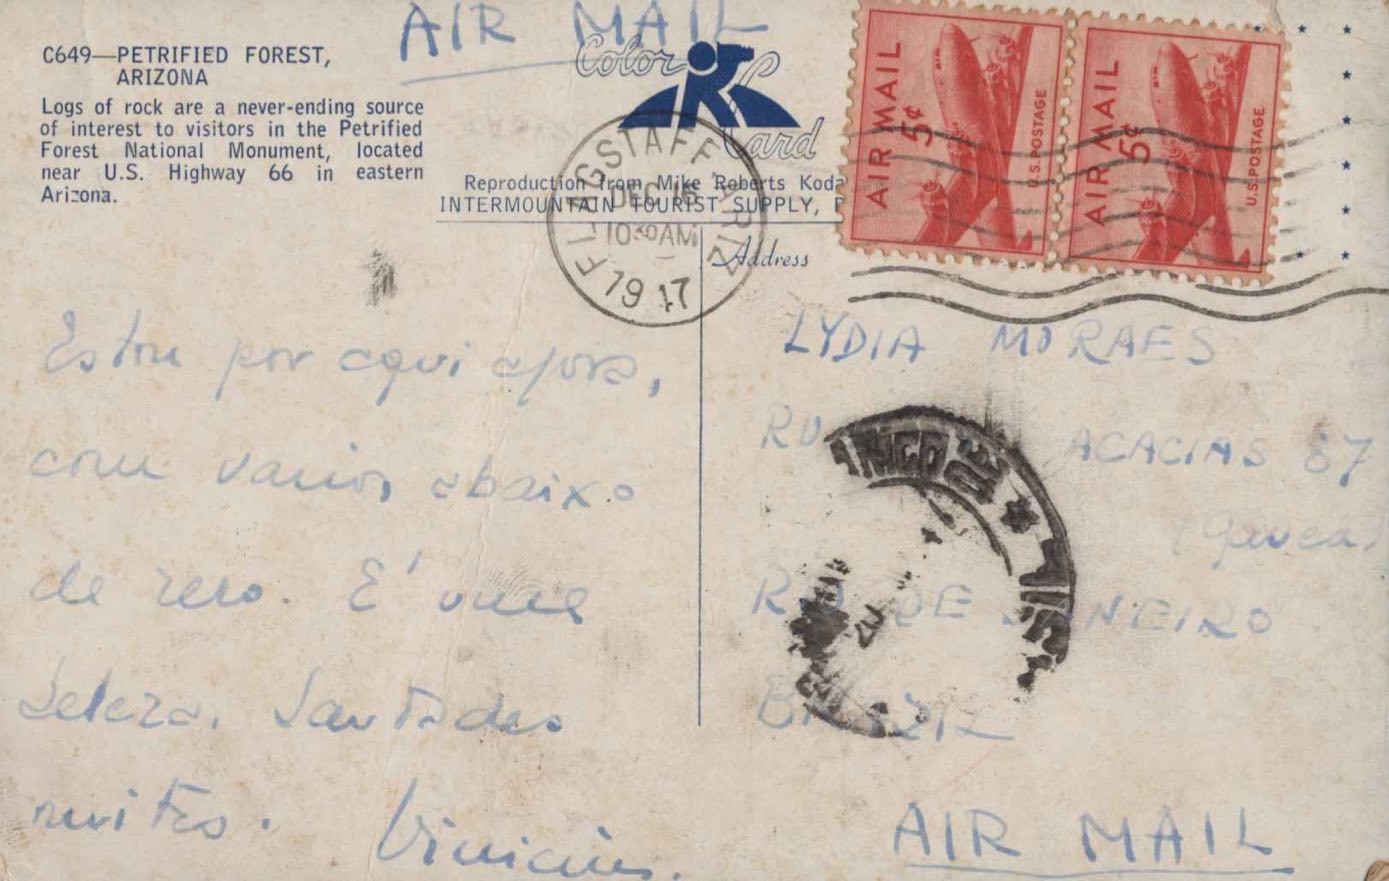 AIR MAIL
C649—PETRIFIED FOREST,
ARIZONA
Logs of rock are a never-ending source
of interest to visitors in the Petrified
Forest National Monument, located
near U.S. Highway 66 in eastern
Arizona.
Color
Card
Reproduction from Mike Roberts Koda
INTERMOUNTAIN TOURIST SUPPLY,
FLAGSTAFF ARIZ
DEC 16
10 30 AM
1947
AIR MAIL
5¢
U.S. POSTAGE
AIR MAIL
5¢
U.S. POSTAGE
Address
Estou por aqui agora,
com varios abaixo
de zero. É uma
beleza. Saudades
muitas. Vinicius.
LYDIA MORAES
ACACIAS 87
(Gavea)
RIO DE JANEIRO
BRAZIL
AIR MAIL